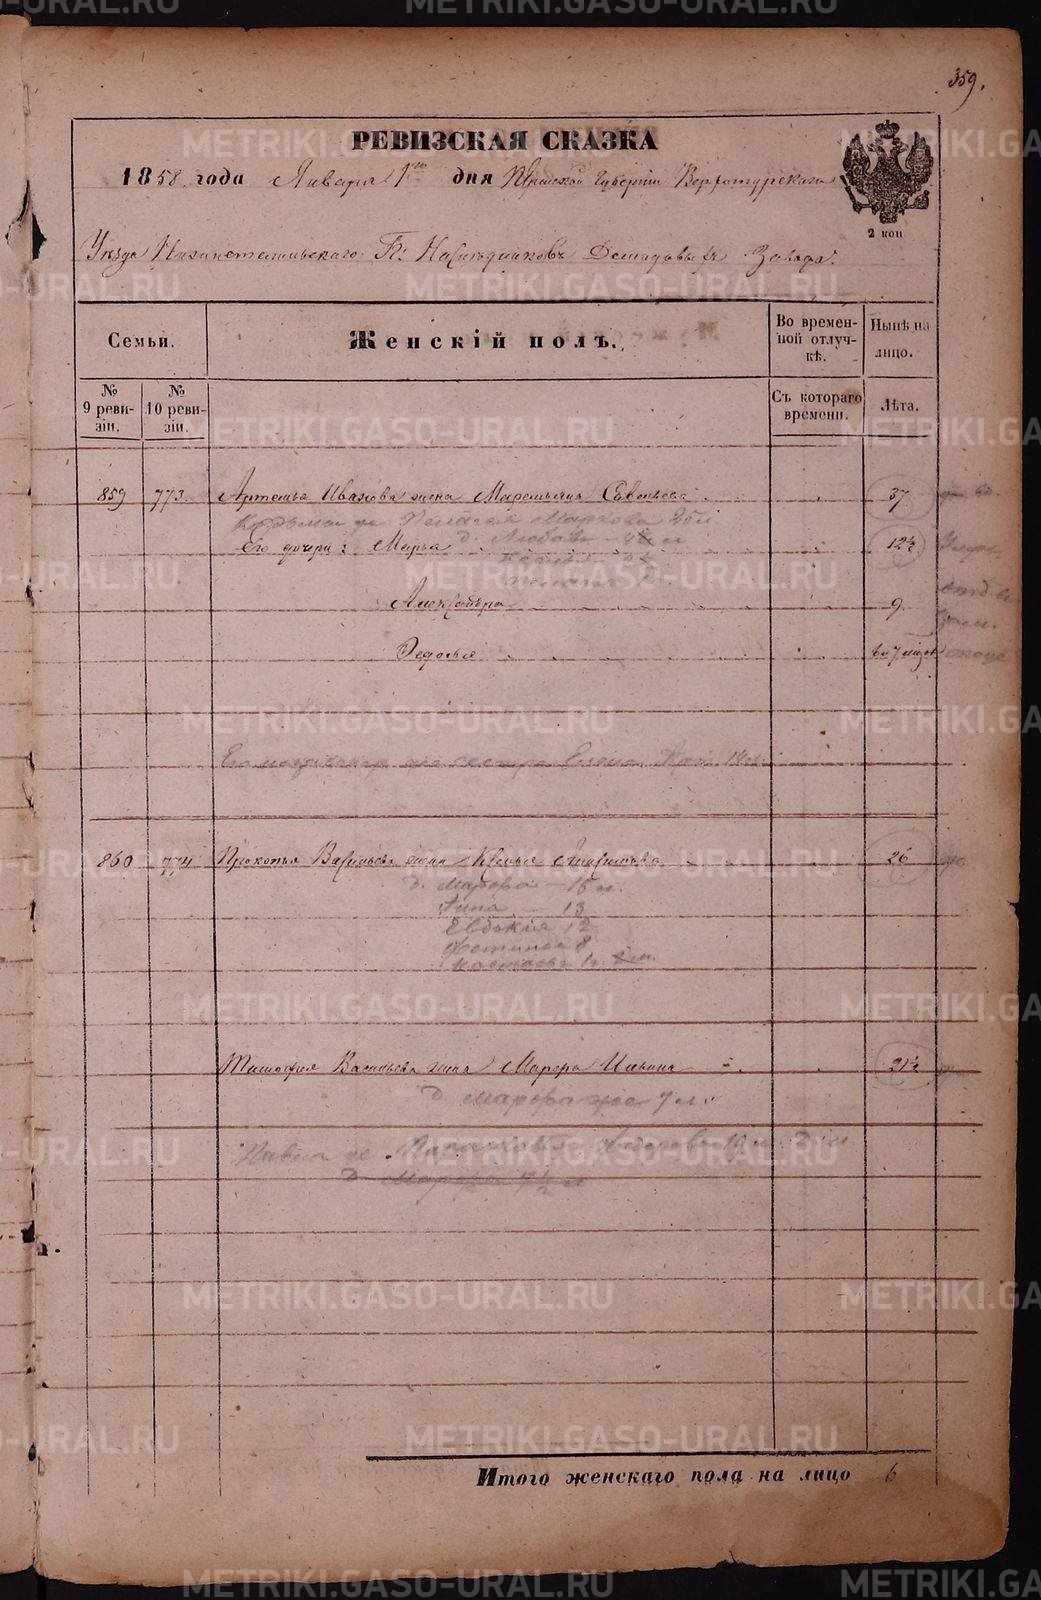 359.
РЕВИЗСКАЯ СКАЗКА
1858 года Января 1го дня Пермской Губернии Верхотурскаго
2 коп
Уезда Нижнетагильскаго Г: Наследниковъ Демидовыхъ Завода.
Семьи.
Женскій полъ.
Во времен-
ной отлуч-
кѣ.
Нынѣ на
лицо.
№
9 реви-
зіи.
№
10 реви-
зіи.
Съ котораго
времени.
Лѣта.
859 773. Артемья Иванова жена Маремьяна Савельева 37
Пелагея Маркова 25 л
Его дочери: Марья 12½
д. Любовь
Александра 9
Федосья 7
сестра Елена
860 774 Прокопья Васильева жена Ксенья 26
д. Марфа - 15 л.
Анна - 13
Евдокия 12
Фотинья 8
Тимофея Васильева жена Марфа Ильина 21½
д. Марфа же 7 л.
Павла ж. 19 л.
д. Марфа
Итого женскаго пола на лицо 6
METRIKI.GASO-URAL.RU